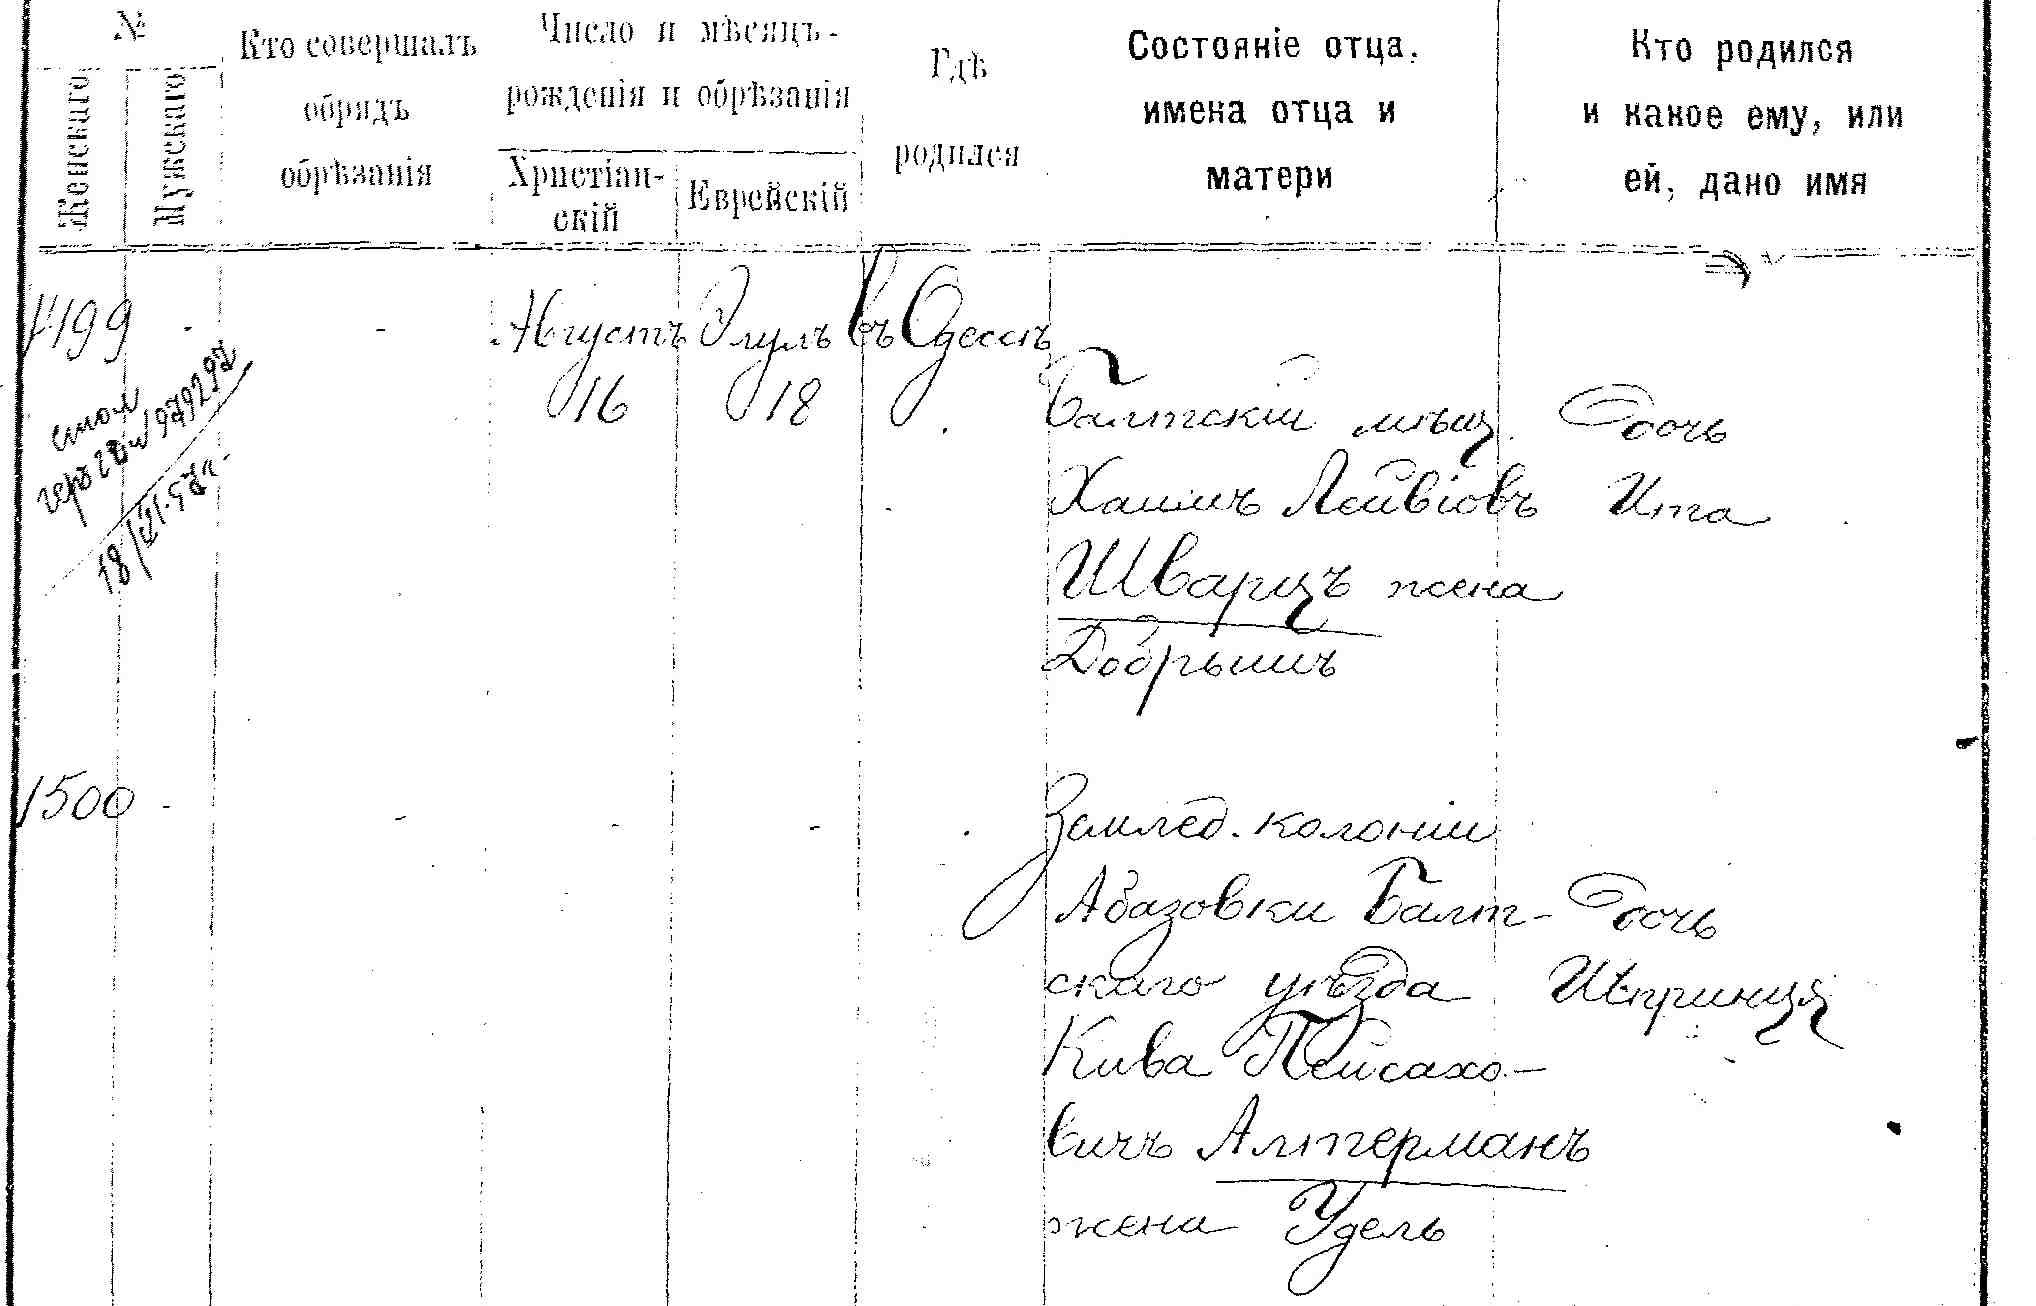 №
Женскаго
Мужскаго
Кто совершалъ
обрядъ
обрѣзанія
Число и мѣсяцъ
рожденія и обрѣзанія
Христіан-
скій
Еврейскій
Гдѣ
родился
Состояніе отца,
имена отца и
матери
Кто родился
и какое ему, или
ей, дано имя
1499 - - Августъ Элулъ въ Одессѣ
16 18
Балтскій мѣщ. Дочь
Хаимъ Лейвіовъ Ита
Шварцъ жена
Добрышъ
97929
1500 - - - -
Землед. колоніи
Абазовки Балт- Дочь
скаго уѣзда
Кива Пейсахо-
вичъ Алтерманъ
жена Удель